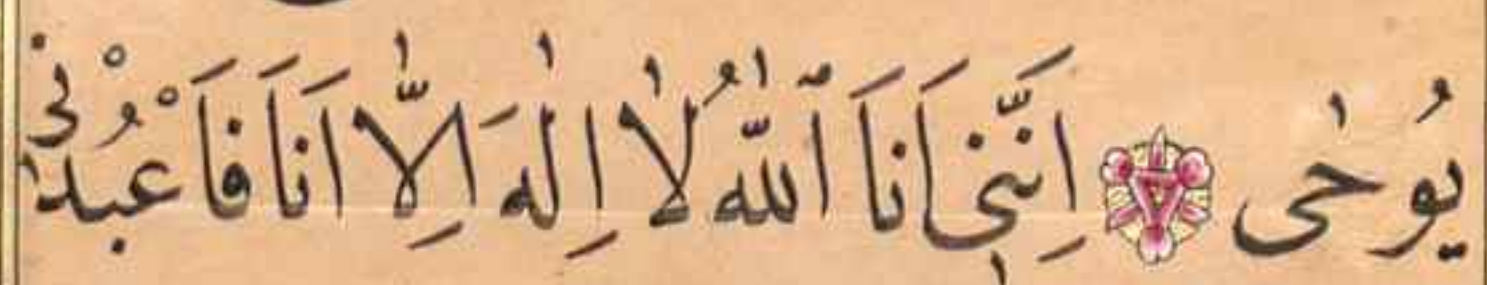 يُوحٰى ۝ اِنَّنٖٓى اَنَا ٱللّٰهُ لٰٓا اِلٰهَ اِلَّٓا اَنَا۬ فَاعْبُدْنٖى